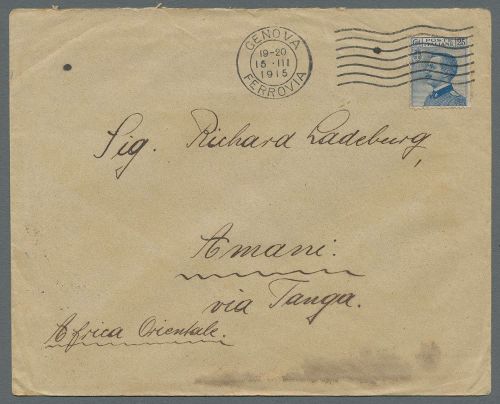 GENOVA
19-20
15·III
1915
FERROVIA
25
Sig. Richard Ladeburg,
Amani.
via Tanga.
Africa Orientale.